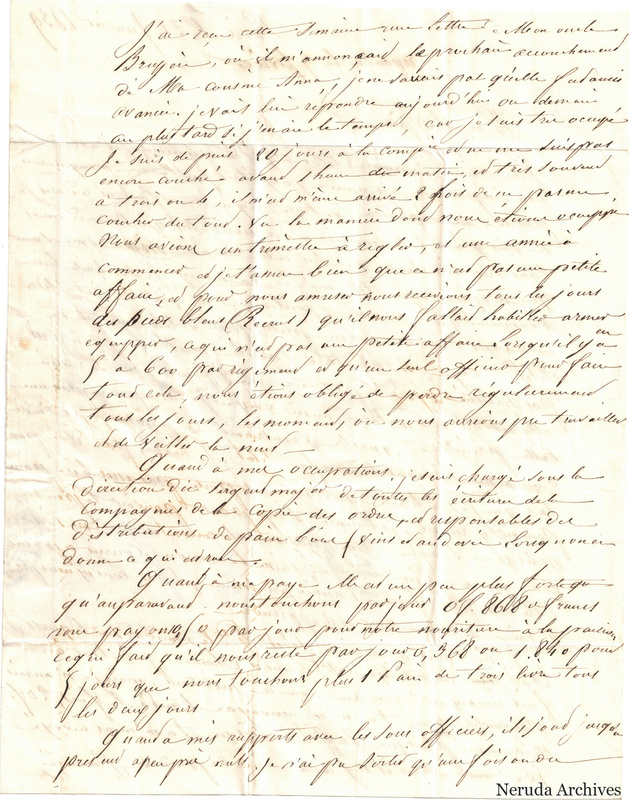 J'ai reçu cette semaine une lettre de Mon oncle
Bruyère, où il m'annonçait le prochain accouchement
de Ma cousine Anna, je ne savais pas qu'elle fut aussi
avancée. je vais lui répondre aujourd'hui ou demain
au plus tard si j'en ai le temps, car je suis tres occupé
Je suis de puis 20 jours à la compie et ne me suis pas
encore couché avant 1 heure du matin, et très souvent
à trois ou 4, il m'est même arrivé 2 fois de ne pas me
coucher du tout. Vu la manière dont nous étions occupés
Nous avions un trimestre à régler, et une année à
commencer et je t'assure bien que ce n'est pas une petite
affaire, et pour nous amuser nous recevions tous les jours
des pieds bleus (Recrues) qu'il nous fallait habiller armer
equipper, ce qui n'est pas une petite affaire lorsqu'il y en a
5 a 600 par régiment et qu'un seul officier pour faire
tout cela, nous étions obligé de perdre régulierement
tous les jours, les moments où nous aurions pu travailler
et de veiller la nuit —
Quand à mes occupations. je suis chargé sous la
direction du sergent major de toutes les écritures de la
Compagnie de la Copie des ordres, et responsables des
distributions de pain bois (vins et eau de vie lorsqu'on en
donne ce qui est rare.
Quand à ma paye elle est un peu plus forte
qu'auparavant. nous touchons par jour 0f.868 de francs
nous payons 0,50 par jour pour notre nourriture à la pension
ce qui fait qu'il nous reste par jour 0,368 ou 1.840 pour
5 jours que nous touchons plus 1 Pain de trois livres tous
les deux jours
Quand a mes rapports avec les sous officiers, ils sont jusqu'à
présent a peu près nuls. Je n'ai pu sortir qu'une fois ou deux
Neruda Archives